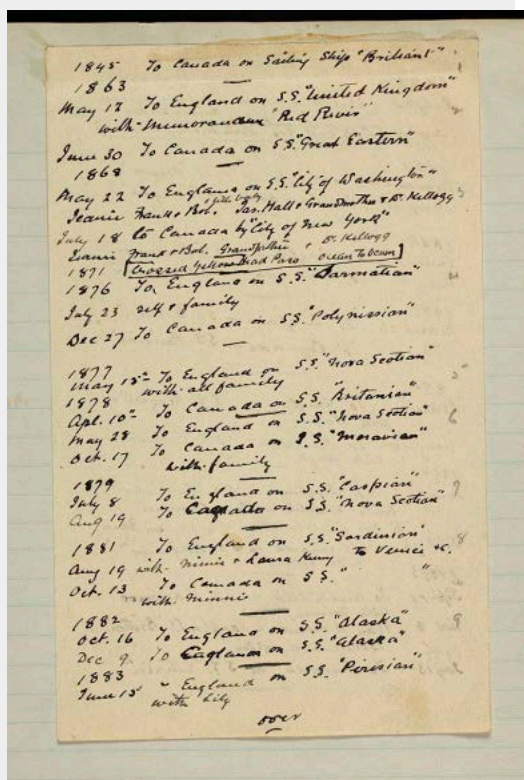 1845 To Canada on Sailing Ship "Briliant"
1863
May 12 To England on S.S. "United Kingdom"
with Memorandum "Red River"
June 30 To Canada on S.S. "Great Eastern"
1868
May 22 To England on S.S. "City of Washington"
Jeanie Frank & Bob. Jas. Hall & Grandmother & Dr. Kellogg
July 18 to Canada by "City of New York"
Jeanie Frank & Bob. Grandfather & Dr. Kellogg
1871 [Crossed Yellow Head Pass Ocean to Ocean]
1876 To England on S.S. "Sarmatian"
July 23 self & family
Dec 27 To Canada on S.S. "Polynissian"
1877
May 15th To England on S.S. "Nova Scotian"
with all family
1878
Apl. 10th To Canada on S.S. "Britanian"
May 28 To England on S.S. "Nova Scotian"
Oct. 17 To Canada on S.S. "Moravian"
with family
1879
July 8 To England on S.S. "Caspian"
Aug 19 To Canada on S.S. "Nova Scotian"
1881 To England on S.S. "Sardinian"
Aug 19 with Minnie & Laura to Venice &c.
Oct. 13 To Canada on S.S. " "
with Minnie
1882
Oct. 16 To England on S.S. "Alaska"
Dec 9 To on S.S. "Alaska"
1883
June 15 " England on S.S. "Pirisian"
with Lily
over